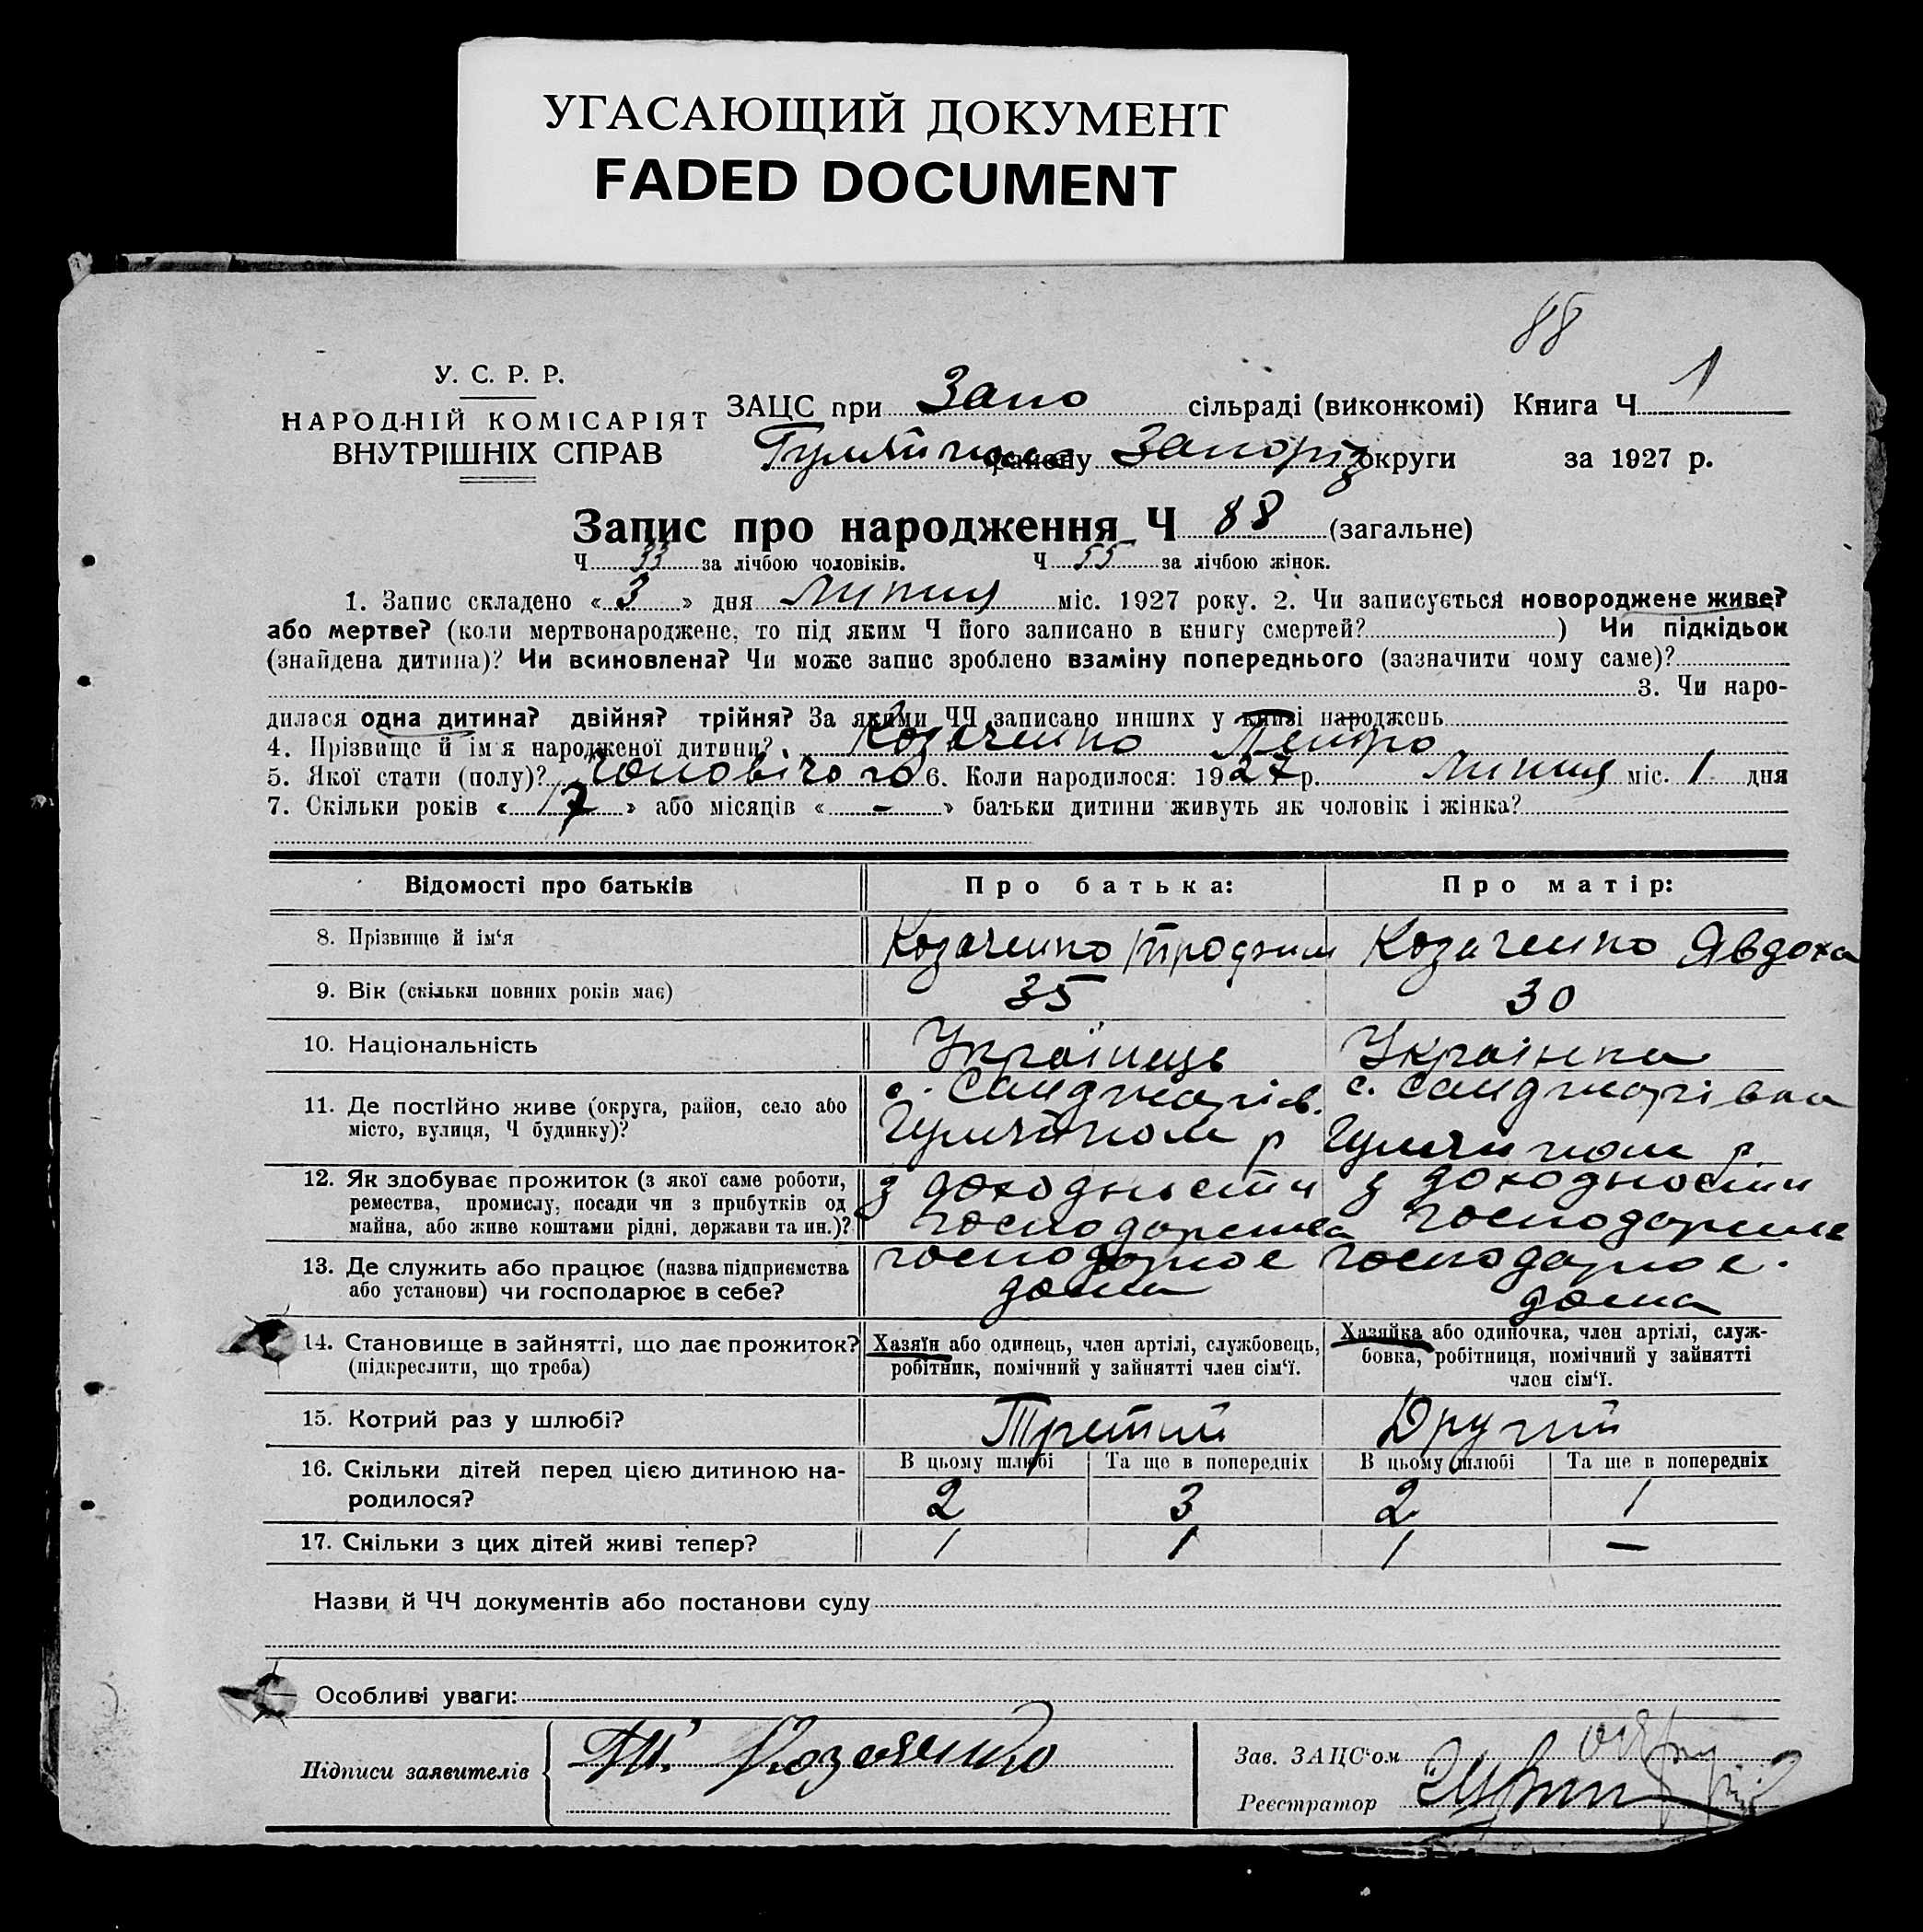 УГАСАЮЩИЙ ДОКУМЕНТ
FADED DOCUMENT
88
У. С. Р. Р.
НАРОДНІЙ КОМІСАРІЯТ
ВНУТРІШНІХ СПРАВ
ЗАЦС при Запо сільраді (виконкомі) Книга Ч 1
району Запоріз округи за 1927 р.
Запис про народження Ч 88 (загальне)
Ч 33 за лічбою чоловіків. Ч 55 за лічбою жінок.
1. Запис складено « 3 » дня липня міс. 1927 року. 2. Чи записується новороджене живе?
або мертве? (коли мертвонароджене, то під яким Ч його записано в книгу смертей? ) Чи підкідьок
(знайдена дитина)? Чи всиновлена? Чи може запис зроблено взаміну попереднього (зазначити чому саме)?
3. Чи наро-
дилася одна дитина? двійня? трійня? За якими ЧЧ записано инших у книзі народжень
4. Прізвище й ім'я народженої дитини? Козаченко Петро
5. Якої стати (полу)? Чоловічого 6. Коли народилося: 1927 р. липня міс. 1 дня
7. Скільки років « 17 » або місяців « - » батьки дитини живуть як чоловік і жінка?
Відомості про батьків Про батька: Про матір:
8. Прізвище й ім'я Козаченко Козаченко Явдоха
9. Вік (скільки повних років має) 35 30
10. Національність Українець Українка
11. Де постійно живе (округа, район, село або місто, вулиця, Ч будинку)?
с. Санджарів. с. Санджарівка
12. Як здобуває прожиток (з якої саме роботи, ремества, промислу, посади чи з прибутків од майна, або живе коштами рідні, держави та ин.)?
з доходности господарства з доходности господарства
13. Де служить або працює (назва підприємства або установи) чи господарює в себе?
господарює дома господарює. дома
14. Становище в зайнятті, що дає прожиток? (підкреслити, що треба)
Хазяїн або одинець, член артілі, службовець, робітник, помічний у зайнятті член сім'ї.
Хазяйка або одиночка, член артілі, служ-
бовка, робітниця, помічний у зайнятті
член сім'ї.
15. Котрий раз у шлюбі? Третий Другий
16. Скільки дітей перед цією дитиною на-
родилося?
В цьому шлюбі Та ще в попередніх В цьому шлюбі Та ще в попередніх
2 3 2 1
17. Скільки з цих дітей живі тепер? 1 1 1 —
Назви й ЧЧ документів або постанови суду
Особливі уваги:
Підписи заявителів Т. Козаченко
Зав. ЗАЦС'ом
Реєстратор